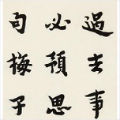 過去事
必預思
句梅子